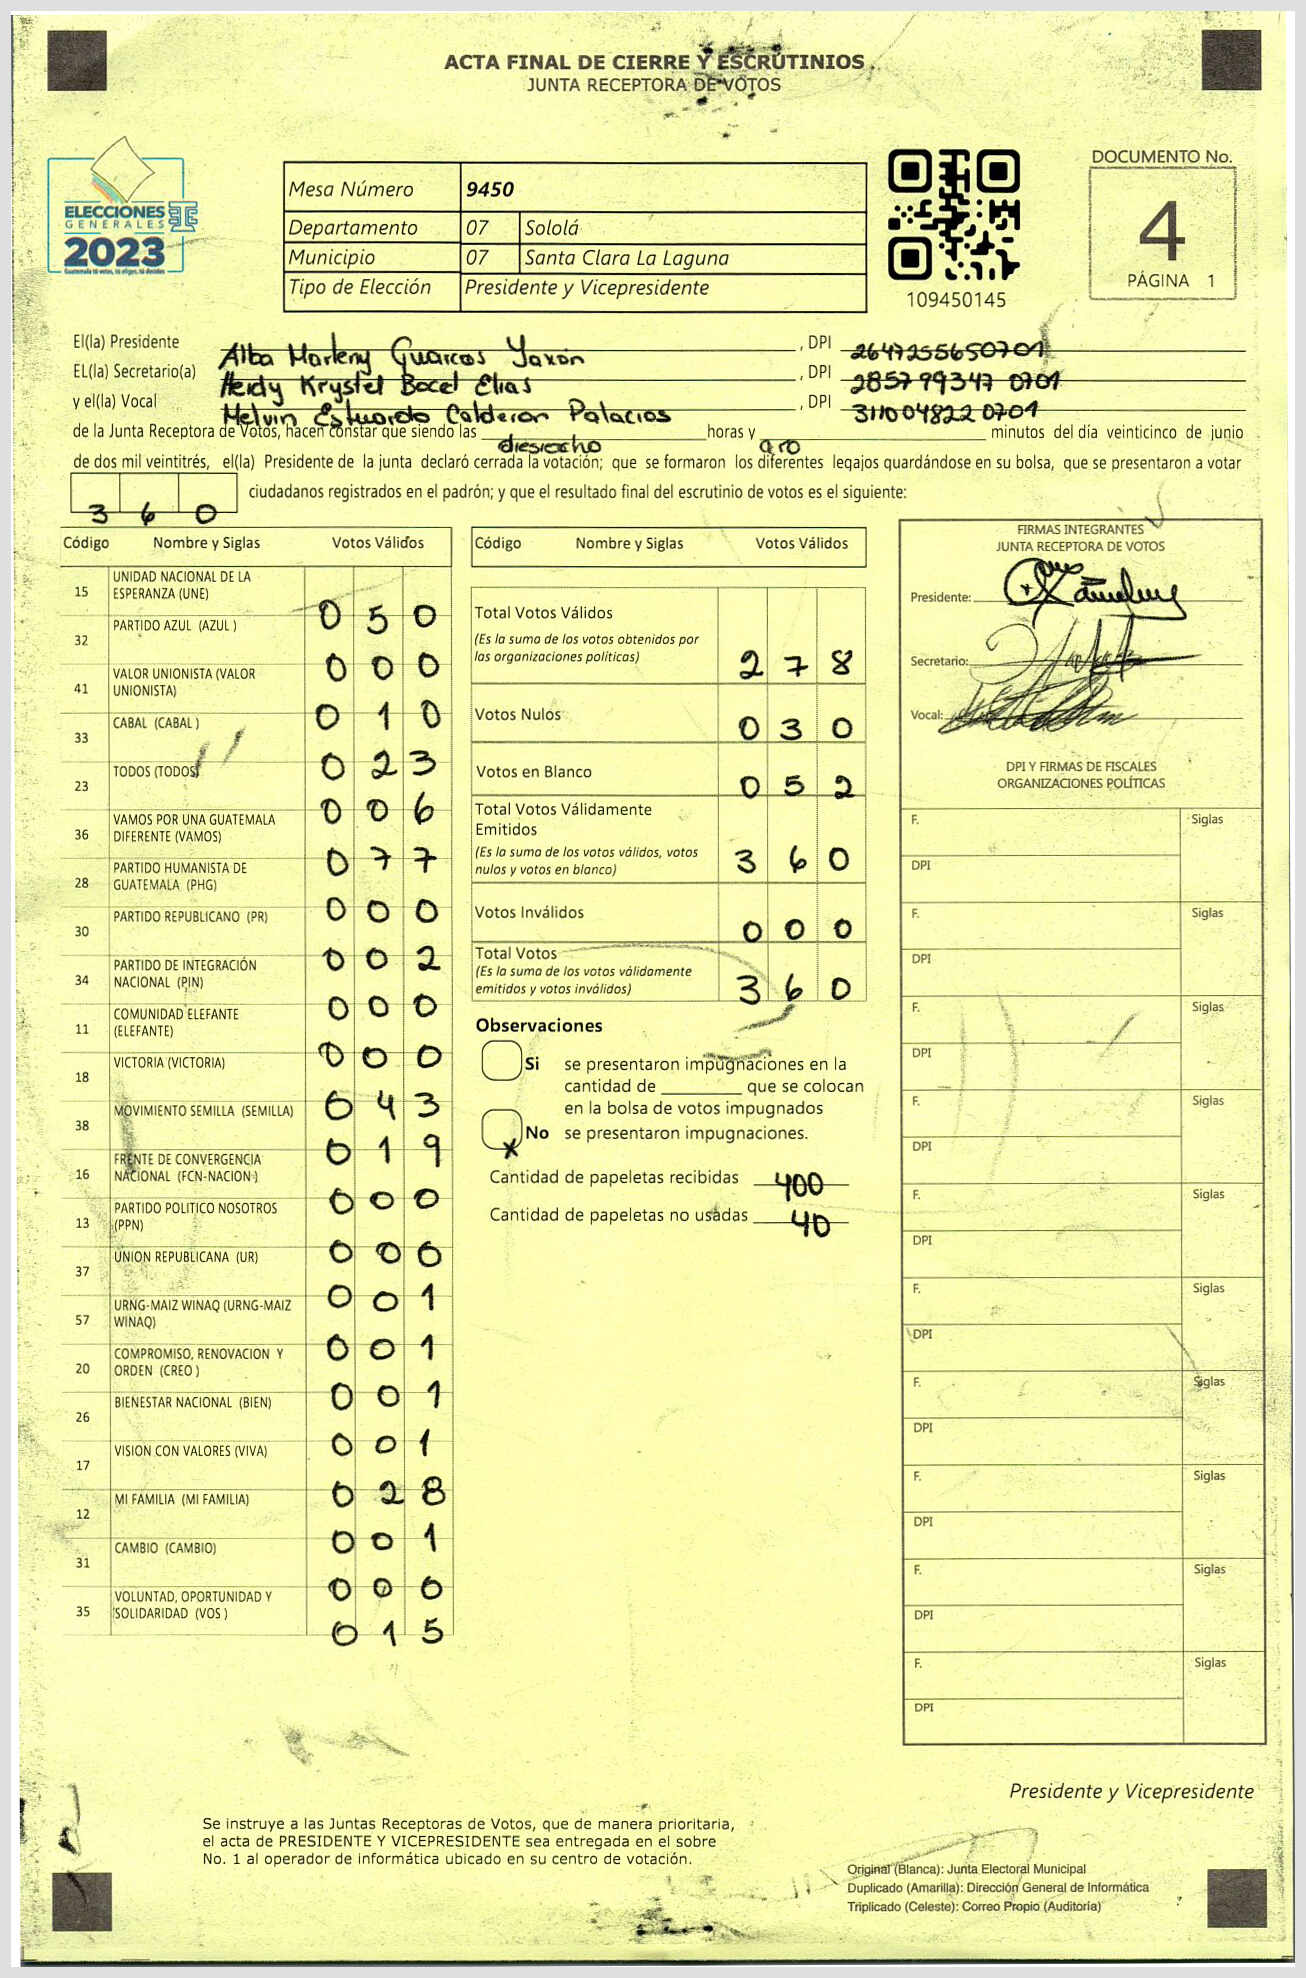 ACTA FINAL DE CIERRE Y ESCRUTINIOS
JUNTA RECEPTORA DE VOTOS
ELECCIONES
GENERALES
2023
Guatemala tú votas, tú eliges, tú decides
Mesa Número 9450
Departamento 07 Sololá
Municipio 07 Santa Clara La Laguna
Tipo de Elección Presidente y Vicepresidente
109450145
DOCUMENTO No.
4
PÁGINA 1
El(la) Presidente Alba Marleny Guarcas Yaxón, DPI 2647255650701
EL(la) Secretario(a) Heidy Krystel Bocel Elias, DPI 2857993470701
y el(la) Vocal Melvin Estuardo Calderon Palacios, DPI 3110048220701
de la Junta Receptora de Votos, hacen constar que siendo las diesiocho horas y cero minutos del día veinticinco de junio
de dos mil veintitrés, el(la) Presidente de la junta declaró cerrada la votación; que se formaron los diferentes legajos guardándose en su bolsa, que se presentaron a votar
360 ciudadanos registrados en el padrón; y que el resultado final del escrutinio de votos es el siguiente:
Código Nombre y Siglas Votos Válidos
15 UNIDAD NACIONAL DE LA ESPERANZA (UNE) 050
32 PARTIDO AZUL (AZUL ) 000
41 VALOR UNIONISTA (VALOR UNIONISTA) 010
33 CABAL (CABAL ) 023
23 TODOS (TODOS) 006
36 VAMOS POR UNA GUATEMALA DIFERENTE (VAMOS) 077
28 PARTIDO HUMANISTA DE GUATEMALA (PHG) 000
30 PARTIDO REPUBLICANO (PR) 002
34 PARTIDO DE INTEGRACIÓN NACIONAL (PIN) 000
11 COMUNIDAD ELEFANTE (ELEFANTE) 000
18 VICTORIA (VICTORIA) 043
38 MOVIMIENTO SEMILLA (SEMILLA) 019
16 FRENTE DE CONVERGENCIA NACIONAL (FCN-NACION ) 000
13 PARTIDO POLITICO NOSOTROS (PPN) 000
37 UNION REPUBLICANA (UR) 001
57 URNG-MAIZ WINAQ (URNG-MAIZ WINAQ) 001
20 COMPROMISO, RENOVACION Y ORDEN (CREO ) 001
26 BIENESTAR NACIONAL (BIEN) 001
17 VISION CON VALORES (VIVA) 028
12 MI FAMILIA (MI FAMILIA) 001
31 CAMBIO (CAMBIO) 000
35 VOLUNTAD, OPORTUNIDAD Y SOLIDARIDAD (VOS ) 015
Código Nombre y Siglas Votos Válidos
Total Votos Válidos
(Es la suma de los votos obtenidos por
las organizaciones políticas) 278
Votos Nulos 030
Votos en Blanco 052
Total Votos Válidamente
Emitidos
(Es la suma de los votos válidos, votos
nulos y votos en blanco) 360
Votos Inválidos 000
Total Votos
(Es la suma de los votos válidamente
emitidos y votos inválidos) 360
Observaciones
Si se presentaron impugnaciones en la
cantidad de ________ que se colocan
en la bolsa de votos impugnados
x No se presentaron impugnaciones.
Cantidad de papeletas recibidas 400
Cantidad de papeletas no usadas 40
FIRMAS INTEGRANTES
JUNTA RECEPTORA DE VOTOS
Presidente:
Secretario:
Vocal:
DPI Y FIRMAS DE FISCALES
ORGANIZACIONES POLÍTICAS
F. Siglas
DPI
F. Siglas
DPI
F. Siglas
DPI
F. Siglas
DPI
F. Siglas
DPI
F. Siglas
DPI
F. Siglas
DPI
F. Siglas
DPI
F. Siglas
DPI
F. Siglas
DPI
Presidente y Vicepresidente
Se instruye a las Juntas Receptoras de Votos, que de manera prioritaria,
el acta de PRESIDENTE Y VICEPRESIDENTE sea entregada en el sobre
No. 1 al operador de informática ubicado en su centro de votación.
Original (Blanca): Junta Electoral Municipal
Duplicado (Amarilla): Dirección General de Informática
Triplicado (Celeste): Correo Propio (Auditoría)